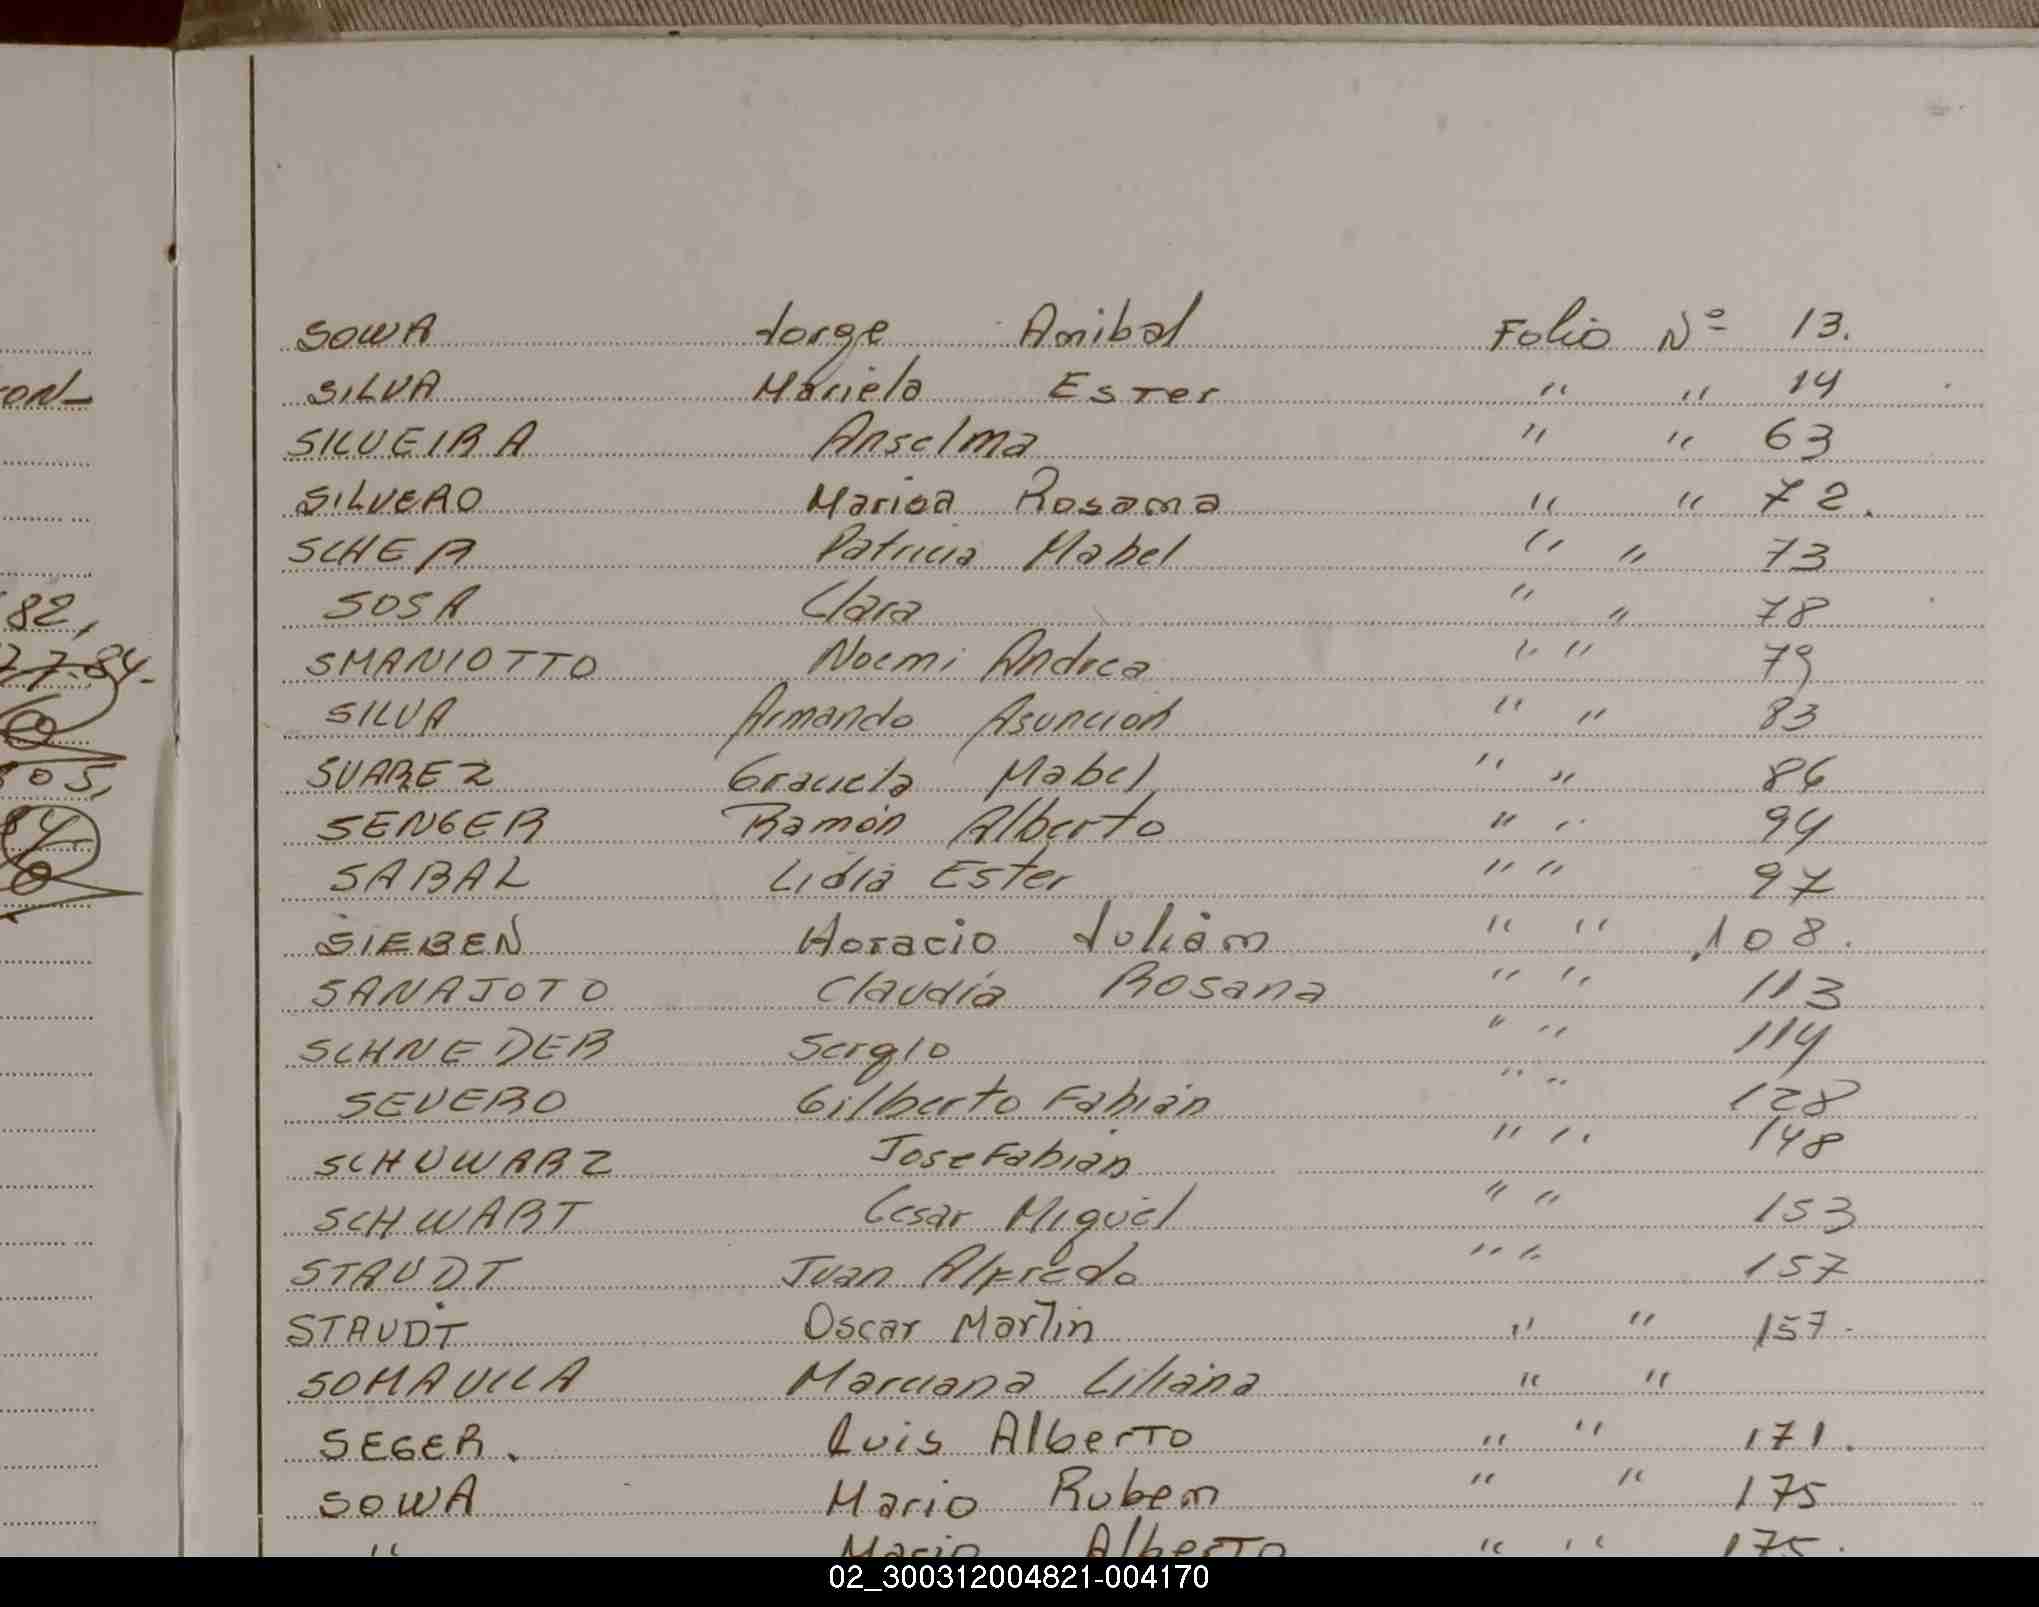 ON-
82,
7.7.84.
05,
84
SOWA Jorge Anibal Folio Nº 13.
SILVA Mariela Ester " " 14
SILVEIRA Anselma " " 63
SILVERO Marisa Rosana " " 72.
SCHER Patricia Mabel " " 73
SOSA Clara " " 78
SMANIOTTO Noemi Andrea " " 79
SILVA Armando Asuncion " " 83
SUAREZ Graciela Mabel " " 86
SENGER Ramón Alberto " " 94
SABAL Lidia Ester " " 97
SIEBEN Horacio Julián " " 108.
SANAJOTO Claudia Rosana " " 113
SCHNEDER Sergio " " 114
SEVERO Gilberto Fabián " " 128
SCHUWARZ Jose Fabián " " 148
SCHWART Cesar Miguel " " 153
STAUDT Juan Alfredo " " 157
STAUDT Oscar Martin " " 157.
SOMAVILLA Marciana Liliana " "
SEGER. Luis Alberto " " 171.
SOWA Mario Ruben " " 175
" Mario Alberto " " 175.
02_300312004821-004170